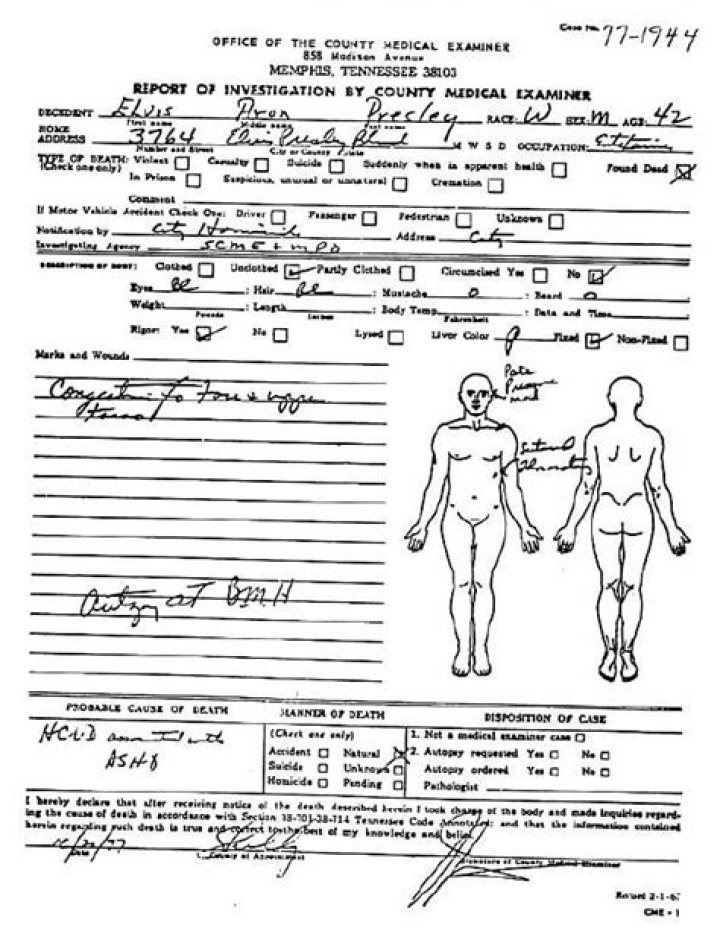 Case No. 77-1944
OFFICE OF THE COUNTY MEDICAL EXAMINER
858 Madison Avenue
MEMPHIS, TENNESSEE 38103
REPORT OF INVESTIGATION BY COUNTY MEDICAL EXAMINER
DECEDENT ELVIS Aron Presley RACE: W SEX: M AGE: 42
First name Middle name Last name
HOME ADDRESS 3764 Elvis Presley Blvd M W S D OCCUPATION:
Number and Street City or County State
TYPE OF DEATH: Violent Casualty Suicide Suddenly when in apparent health Found Dead
(Check one only) In Prison Suspicious, unusual or unnatural Cremation
Comment
If Motor Vehicle Accident Check One: Driver Passenger Pedestrian Unknown
Notification by City Homicide Address City
Investigating Agency SCME + MPD
DESCRIPTION OF BODY: Clothed Unclothed Partly Clothed Circumcised Yes No
Eyes Bl : Hair Bl : Mustache 0 : Beard 0
Weight : Length : Body Temp. : Date and Time
Pounds Inches Fahrenheit
Rigor: Yes No Lysed Livor Color P Fixed Non-Fixed
Marks and Wounds
Congestion to
Autopsy at BMH
PROBABLE CAUSE OF DEATH
HCVD
ASHD
MANNER OF DEATH
(Check one only)
Accident Natural
Suicide Unknown
Homicide Pending
DISPOSITION OF CASE
1. Not a medical examiner case
2. Autopsy requested Yes No
Autopsy ordered Yes No
Pathologist
I hereby declare that after receiving notice of the death described herein I took charge of the body and made inquiries regard-
ing the cause of death in accordance with Section 38-701-38-714 Tennessee Code Annotated; and that the information contained
herein regarding such death is true and correct to the best of my knowledge and belief.
Date County of Appointment Signature of County Medical Examiner
Revised 2-1-67
CME - 1